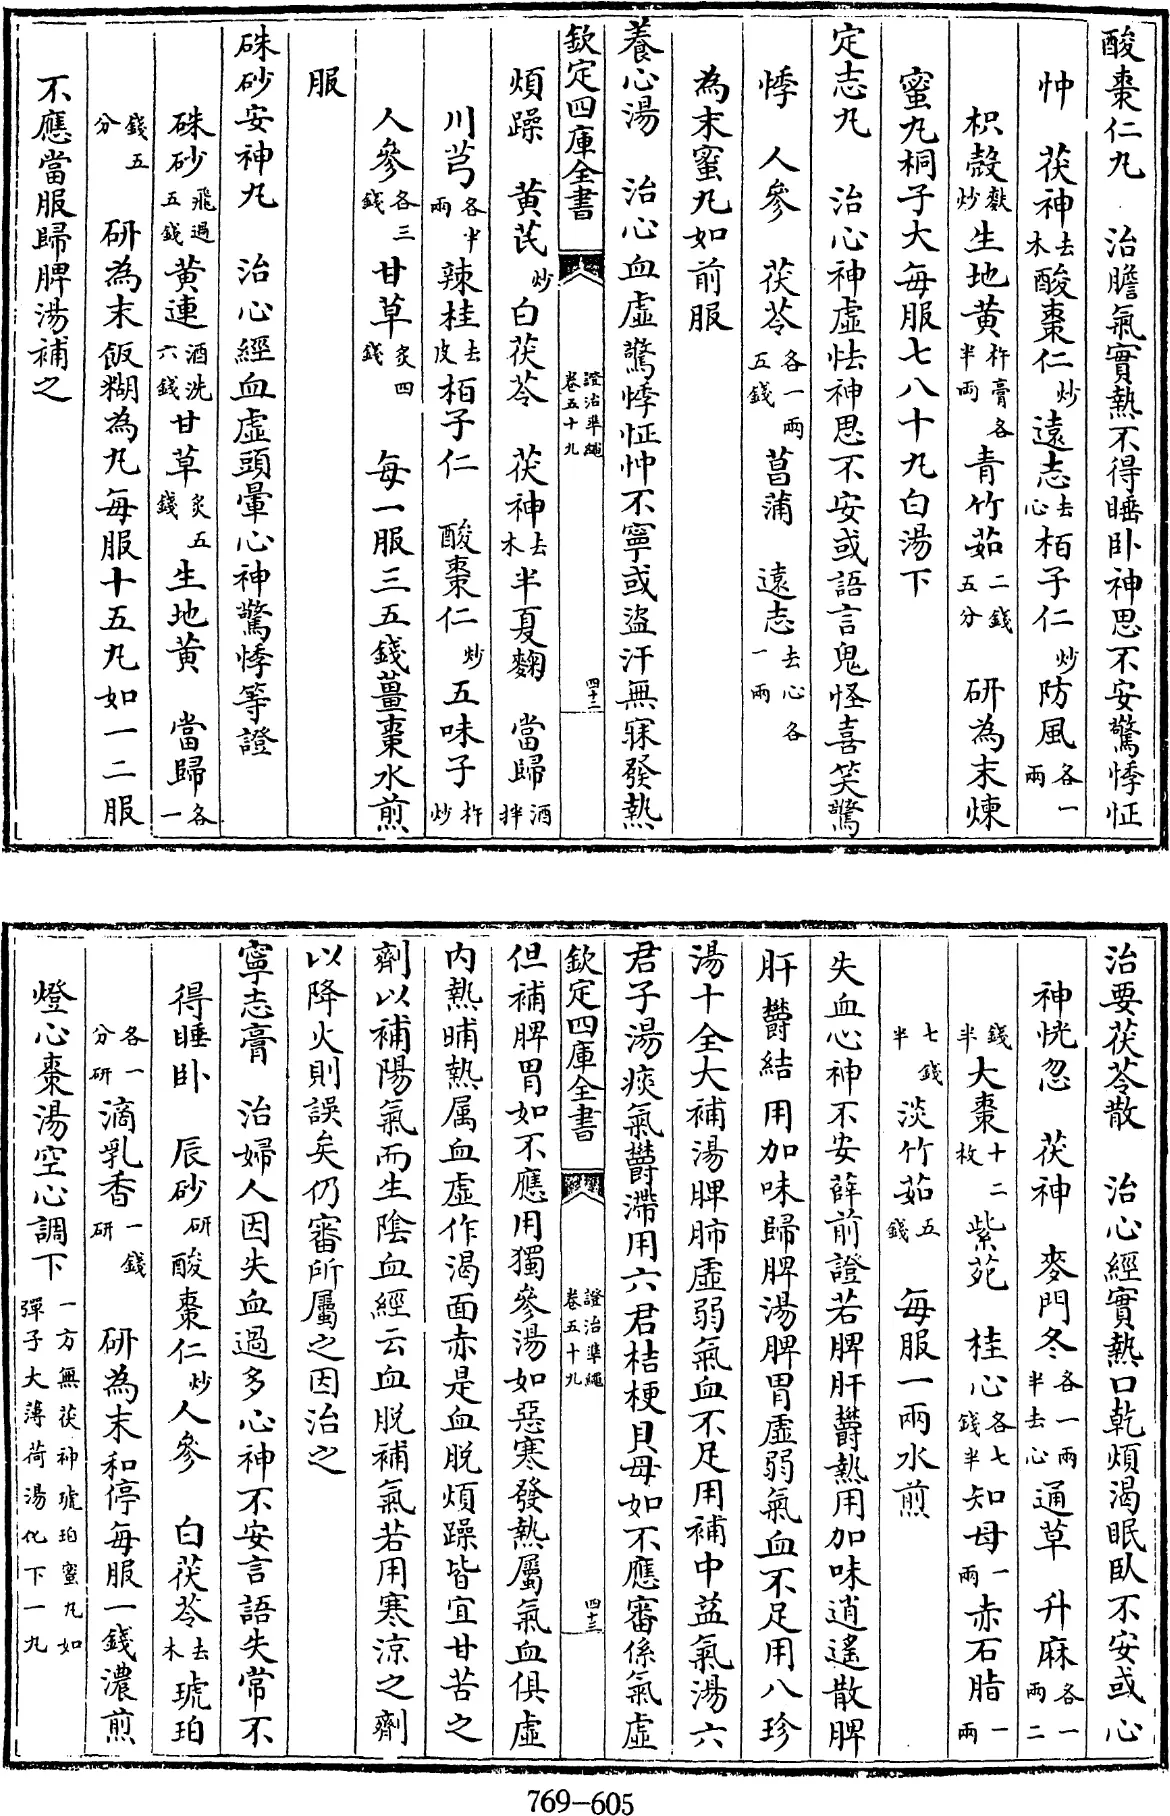 酸棗仁丸　治膽氣實熱不得睡卧神思不安驚悸怔
忡　茯神去木酸棗仁炒遠志去心柏子仁炒防風各一兩
枳殼麩炒生地黃杵膏各半兩青竹茹二錢五分　研為末煉
蜜丸桐子大每服七八十丸白湯下
定志丸　治心神虛怯神思不安或語言鬼怪喜笑驚
悸　人參　茯苓各一兩五錢菖蒲　遠志去心各一兩
為末蜜丸如前服
養心湯　治心血虛驚悸怔忡不寧或盜汗無寐發熱
欽定四庫全書　證治準繩卷五十九　四十二
煩躁　黃芪炒白茯苓　茯神去木半夏麯　當歸酒拌
川芎各半兩辣桂去皮柏子仁　酸棗仁炒五味子杵炒
人參各三錢甘草炙四錢　每一服三五錢薑棗水煎
服
硃砂安神丸　治心經血虛頭暈心神驚悸等證
硃砂飛過五錢黃連酒洗六錢甘草炙五錢生地黃　當歸各一
錢五分　研為末飯糊為丸每服十五丸如一二服
不應當服歸脾湯補之
治要茯苓散　治心經實熱口乾煩渴眠臥不安或心
神恍忽　茯神　麥門冬各一兩半去心通草　升麻各一兩二
錢半大棗十二枚紫苑　桂心各七錢半知母一兩赤石脂一兩
七錢半淡竹茹五錢　每服一兩水煎
失血心神不安薛前證若脾肝鬱熱用加味逍遙散脾
肝鬱結用加味歸脾湯脾胃虛弱氣血不足用八珍
湯十全大補湯脾肺虛弱氣血不足用補中益氣湯六
君子湯痰氣鬱滯用六君桔梗貝母如不應審係氣虛
欽定四庫全書　證治準繩卷五十九　四十三
但補脾胃如不應用獨參湯如惡寒發熱屬氣血俱虛
內熱晡熱属血虛作渴面赤是血脱煩躁皆宜甘苦之
劑以補陽氣而生陰血經云血脱補氣若用寒涼之劑
以降火則誤矣仍審所屬之因治之
寧志膏　治婦人因失血過多心神不安言語失常不
得睡卧　辰砂研酸棗仁炒人參　白茯苓去木琥珀
各一分研滴乳香一錢研　研為末和停每服一錢濃煎
燈心棗湯空心調下一方無茯神琥珀蜜丸如彈子大薄荷湯化下一丸
769—605